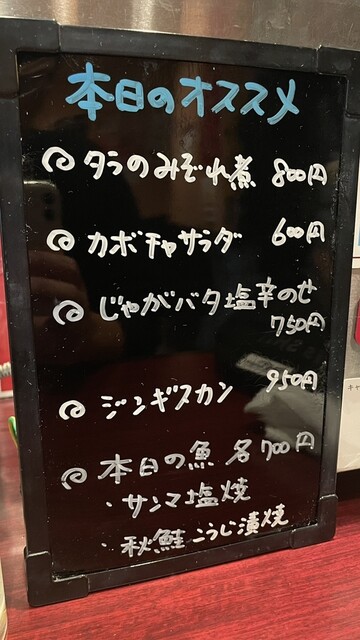 本日のオススメ
タラのみぞれ煮 800円
カボチャサラダ 600円
じゃがバタ塩辛のせ
750円
ジンギスカン 950円
本日の魚 各700円
・サンマ塩焼
・秋鮭こうじ漬焼